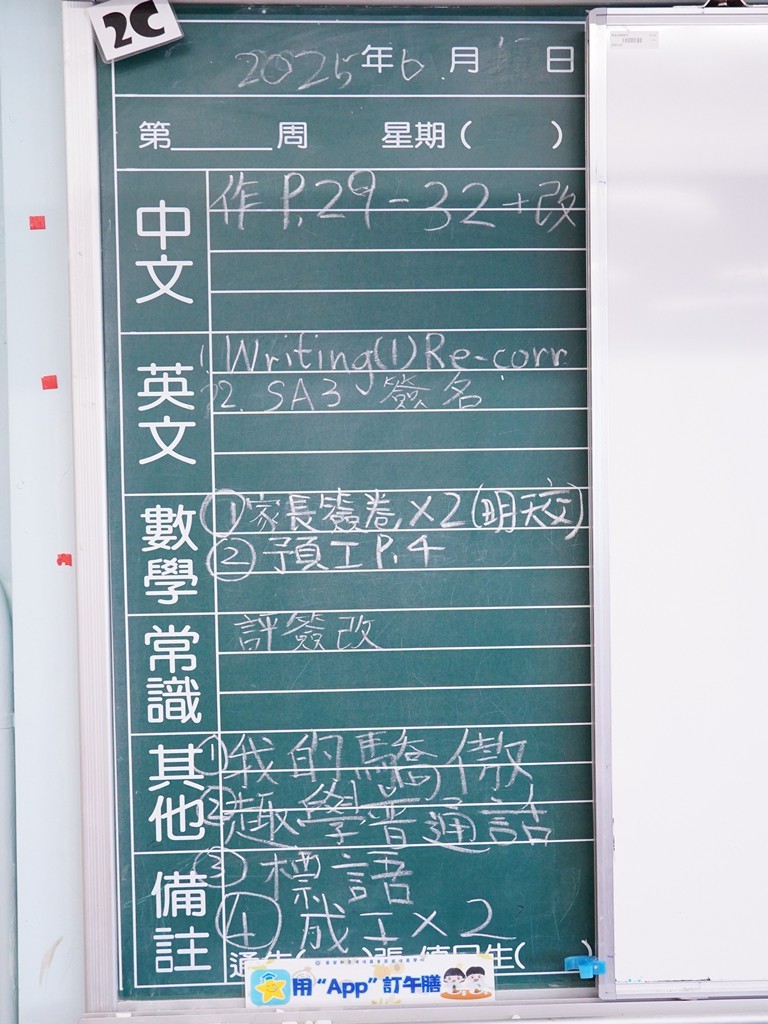 2C
2025年6月 日
第 周 星期( )
中文
作 P.29-32+改
英文
1. Writing(1) Re-corr
2. SA3 簽名
數學
① 家長簽卷 ×2(明天交)
② 預工 P.4
常識
評簽改
其他
① 我的驕傲
② 趣學普通話
備註
③ 標語
④ 成工×2
用“App”訂午膳